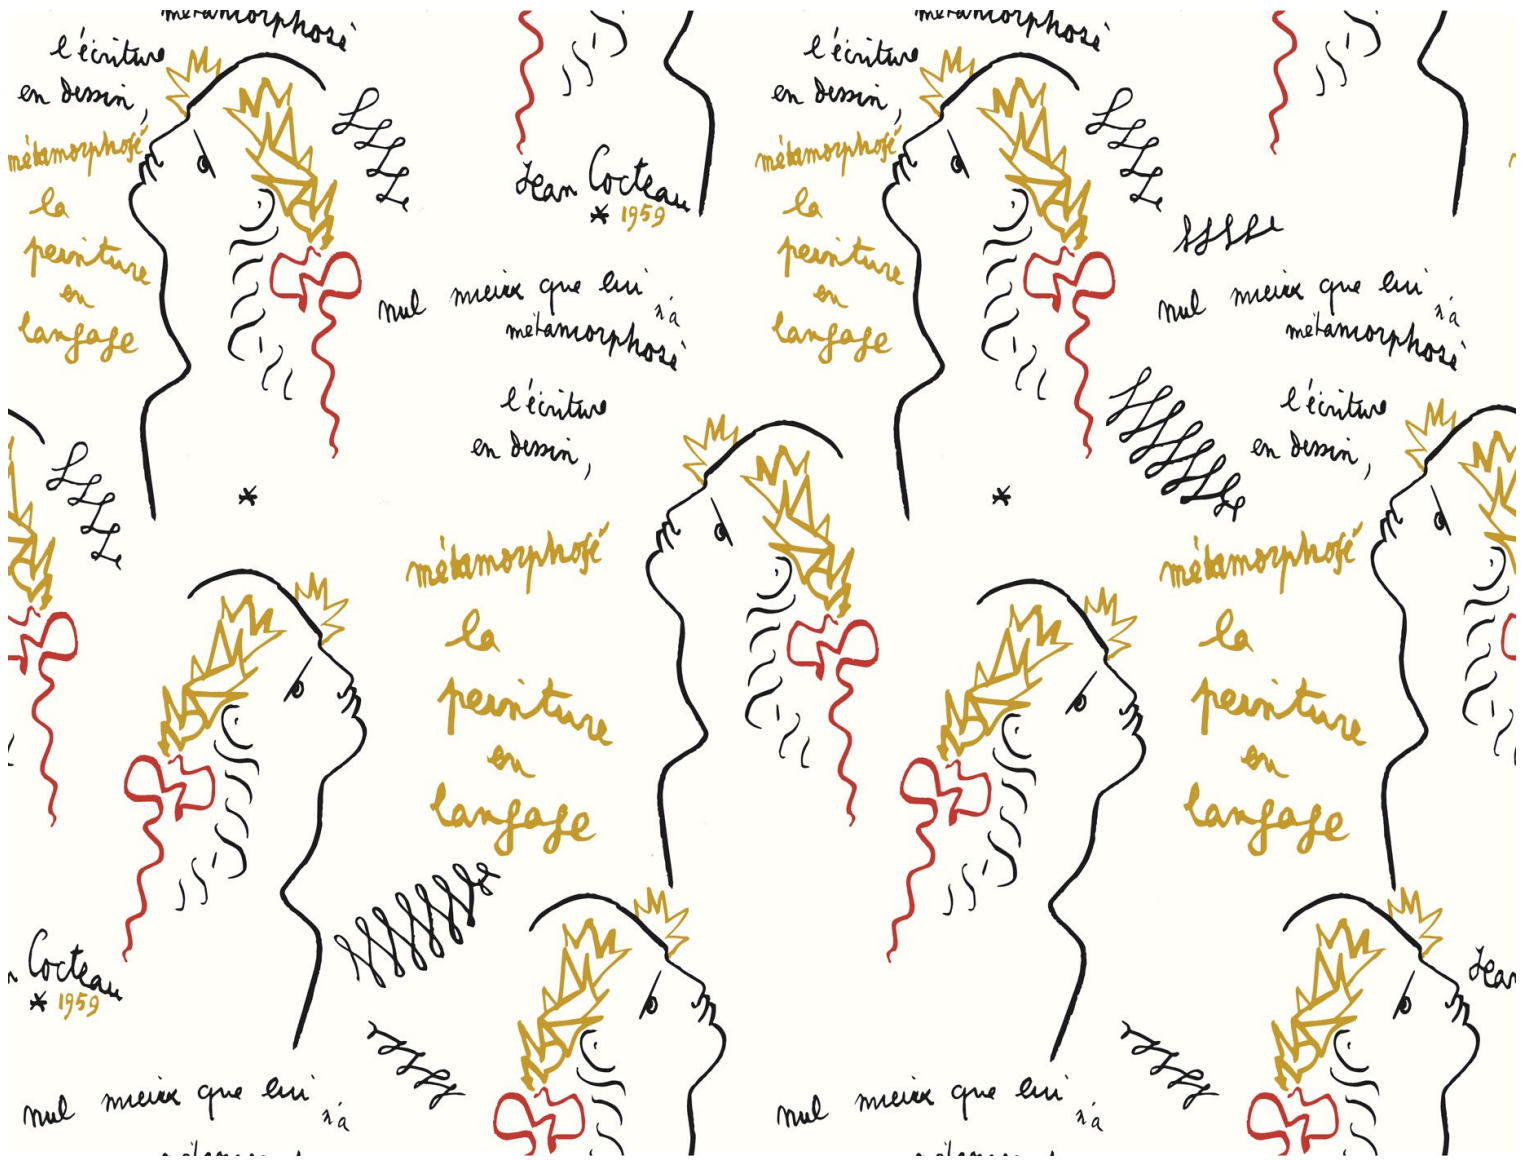 métamorphosé
métamorphosé
l'écriture
en dessin,
métamorphosé
la
peinture
en
langage
Jean Cocteau
* 1959
l'écriture
en dessin,
métamorphosé
la
peinture
en
langage
nul mieux que lui
n'a
métamorphosé
l'écriture
en dessin,
*
métamorphosé
la
peinture
en
langage
nul mieux que lui
n'a
métamorphosé
l'écriture
en dessin,
*
métamorphosé
la
peinture
en
langage
Cocteau
* 1959
Jean
nul mieux que lui
n'a
nul mieux que lui
n'a